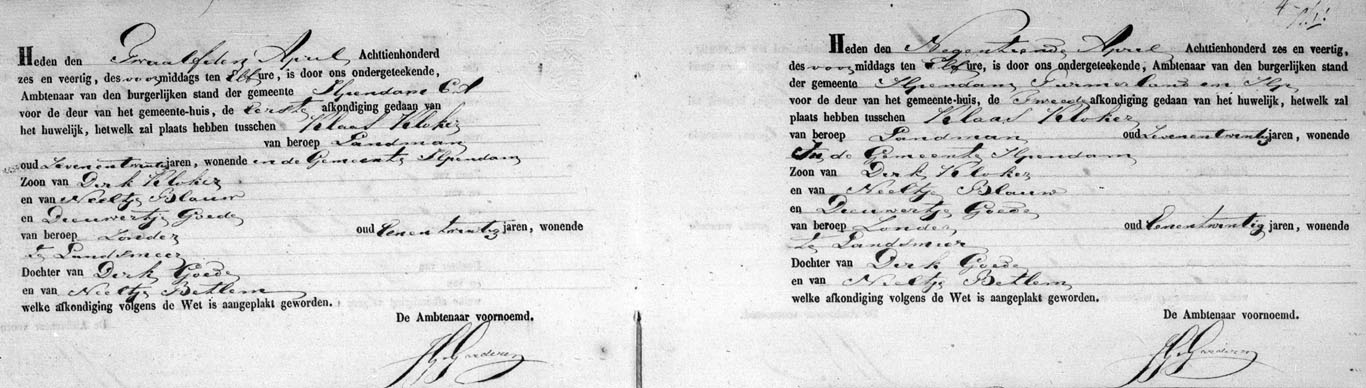 Heden den Twaalfden April Achttienhonderd
zes en veertig, des voormiddags ten Elf ure, is door ons ondergeteekende,
Ambtenaar van den burgerlijken stand der gemeente Ilpendam C:A
voor de deur van het gemeente-huis, de Eerste afkondiging gedaan van
het huwelijk, hetwelk zal plaats hebben tusschen Klaas Kloker
van beroep Landman
oud Zevenentwintig jaren, wonende in de Gemeente Ilpendam
Zoon van Dirk Kloker
en van Neeltje Blauw
en Dieuwertje Goede
van beroep Zonder oud Eenentwintig jaren, wonende
te Landsmeer
Dochter van Dirk Goede
en van Neeltje Betlem
welke afkondiging volgens de Wet is aangeplakt geworden.
De Ambtenaar voornoemd.
Heden den Negentiende April Achttienhonderd zes en veertig,
des voormiddags ten Elf ure, is door ons ondergeteekende, Ambtenaar van den burgerlijken stand
der gemeente Ilpendam Purmerland en Ilp
voor de deur van het gemeente-huis, de Tweede afkondiging gedaan van het huwelijk, hetwelk zal
plaats hebben tusschen Klaas Kloker
van beroep Landman oud Zevenentwintig jaren, wonende
In de Gemeente Ilpendam
Zoon van Dirk Kloker
en van Neeltje Blauw
en Dieuwertje Goede
van beroep Zonder oud Eenentwintig jaren, wonende
te Landsmeer
Dochter van Dirk Goede
en van Neeltje Betlem
welke afkondiging volgens de Wet is aangeplakt geworden.
De Ambtenaar voornoemd.